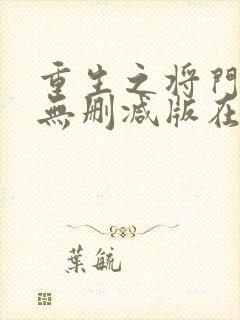 重生之将門
無刪减版在
葉毓